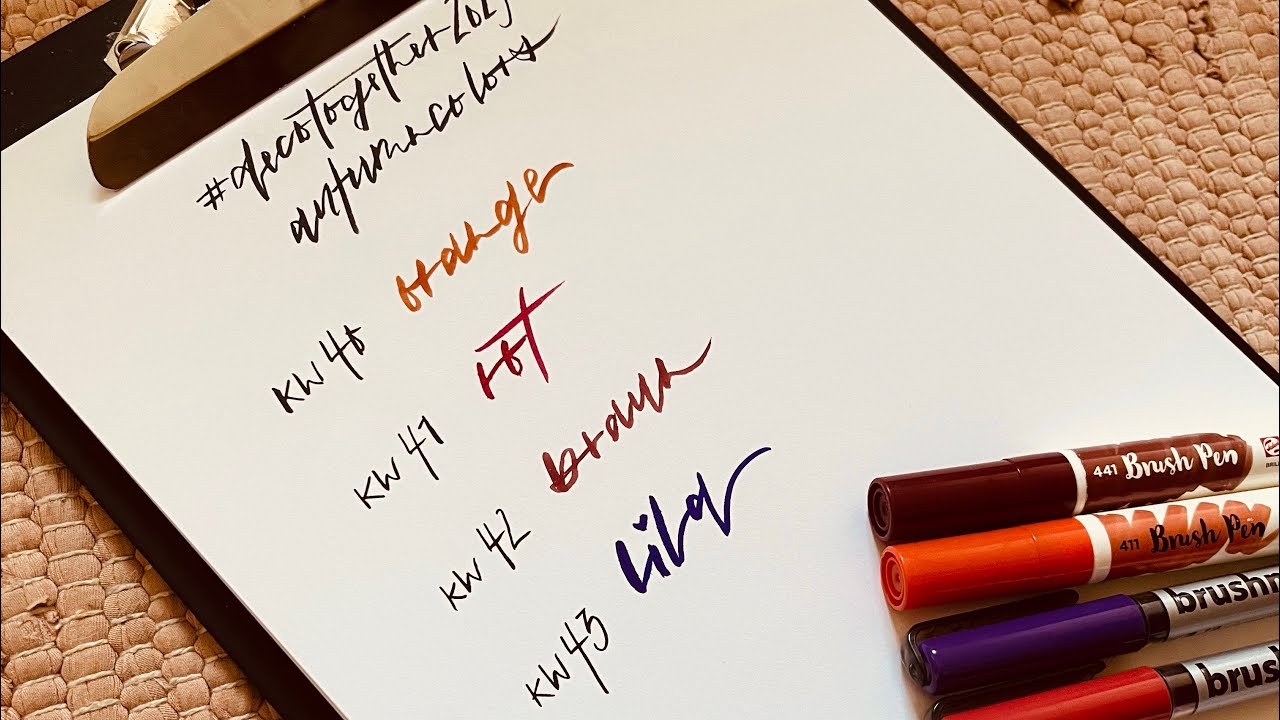 #decotogether2023
autumncolors
KW 40 orange
KW 41 rot
KW 42 braun
KW 43 lila
441 Brush Pen
411 Brush Pen
brush
brush